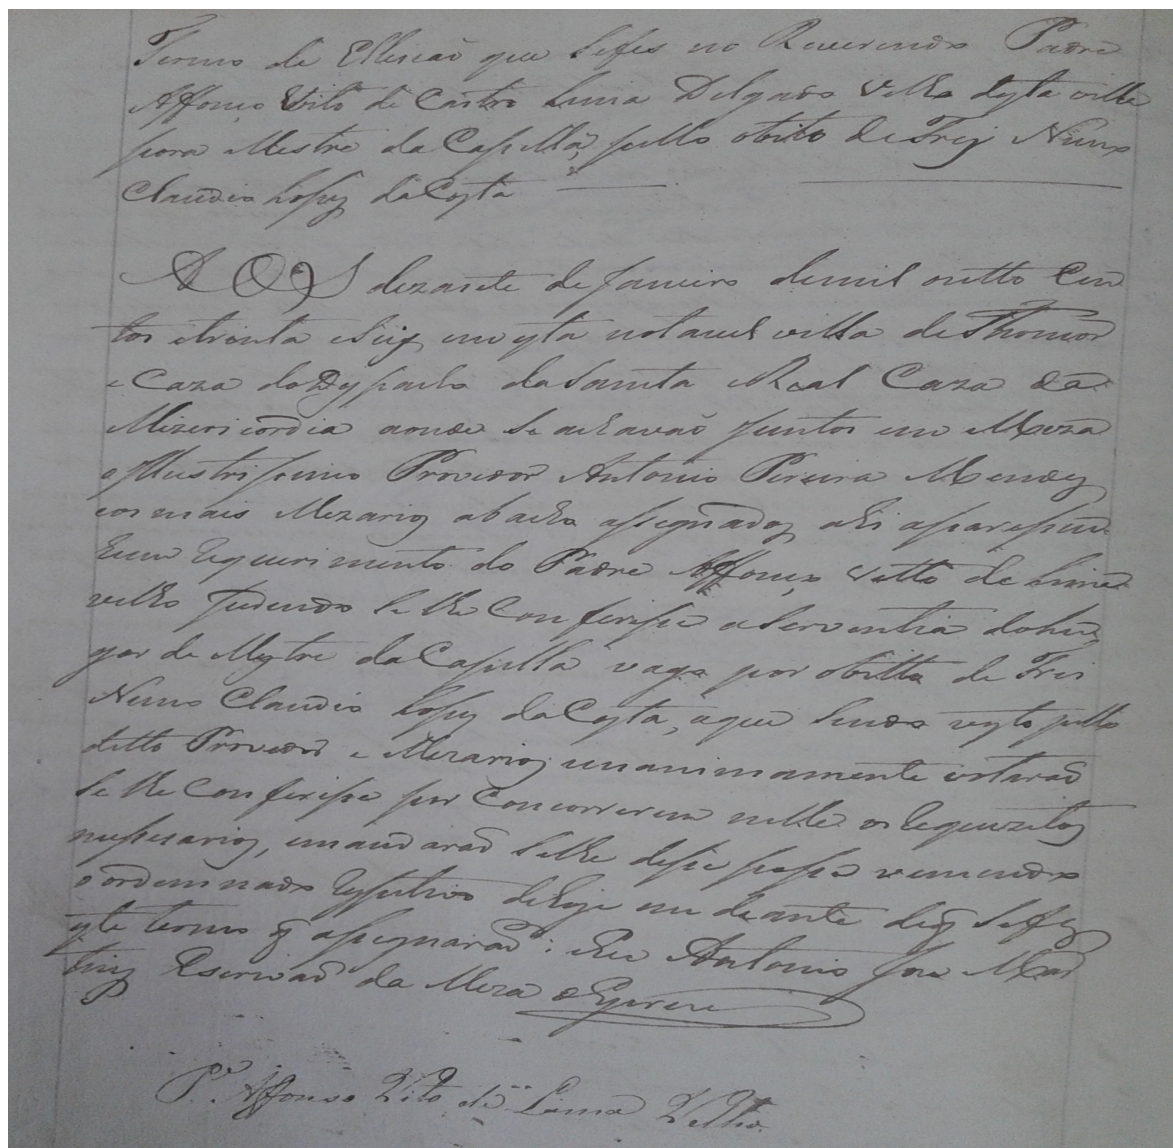 Termo de Elleicaõ que Sefes no Reuerendo Padre
Affonço Vito de Castro Lima Delgado Velho desta villa
para Mestre da Capella, pello obito de Frej Nuno
Claudio Lopes da Costa
AOS dezasete de Janeiro demil outto Cen
tos etrinta eSeis em esta notauel villa de Thomar
e Caza doDespacho da Santa Real Caza da
Mizericordia aonde Se achavaõ juntos em Meza
o Illustrissimo Provedor Antonio Pereira Mendes
eos mais Mezarios abacho assignados ahi aparesseu
hum Requerimento do Padre Affonço Vitto de Lima
velho pedindo Se lhe Conferisse aServentia doLu
gar de Mestre daCapella vago por obitto de Frei
Nuno Claudio Lopes daCosta, aque Sendo visto pello
ditto Provedor e Mezarios unanimamente votaraõ
Se lhe Conferisse por Concorrerem nelle os Requezitos
nessesarios, emandaraõ Selhe desse posse vencendo
o ordenado Respetivo deHoje em deante deq̃ Sefes
este termo q̃ assignaraõ: Eu Antonio Joze Mar
tins Escrivaõ da Meza oEscrevi
P.e Affonso Vito de Lima Velho.